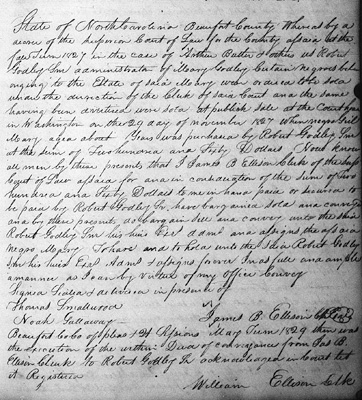 State of North carolina Beaufort County Whereas by a
decree of the Superior Court of Law for the County afsaid at the
fall Term 1827 in the case of Butler & others vs Robert
Godley Jr administrator of Mary Godley Certain negroes belo
nging to the Estate of said Mary were ordered to be sold
under the direction of the Clerk of said Court and the same
having been advertised were sold at publick sale at the Court house
in Washington on the 29 day of november 1827 When negro Girl
Mary aged about Years was purchased by Robert Godley Jnr
at the sum of Two hundred and Fifty Dollars Now Know
all men by these presents that I James B Ellison Clerk of the Sup
Court of Law afsaid for and in consideration of the sum of Two
hundred and Fifty Dollars to me in hand paid or secured to
be paid by Robert Godley Jr, have bargained sold and conveyed
and by these presents, do bargain sell and convey unto the said
Robert Godley Jnr his heirs Exrs admrs and assigns the afsaid
negro Mary To have and to hold unto the Said Robert Godley
Jnr his heirs Exrs Admrs & assigns forever In as full and ample
a manner as I can by virtue of my office Convey
Signed Sealed & delivered in presence of
Thomas Smallwood
Noah Gallaway James B. Ellison Clk Seal
Beaufort Co Co of pleas & 24 Sessions May Term 1829 then was
the Execution of the within Deed of conveyance from Jas B.
Ellison Clerk To Robert Godley Jr acknowledged in Court Let
it Registered
William Ellison Clk